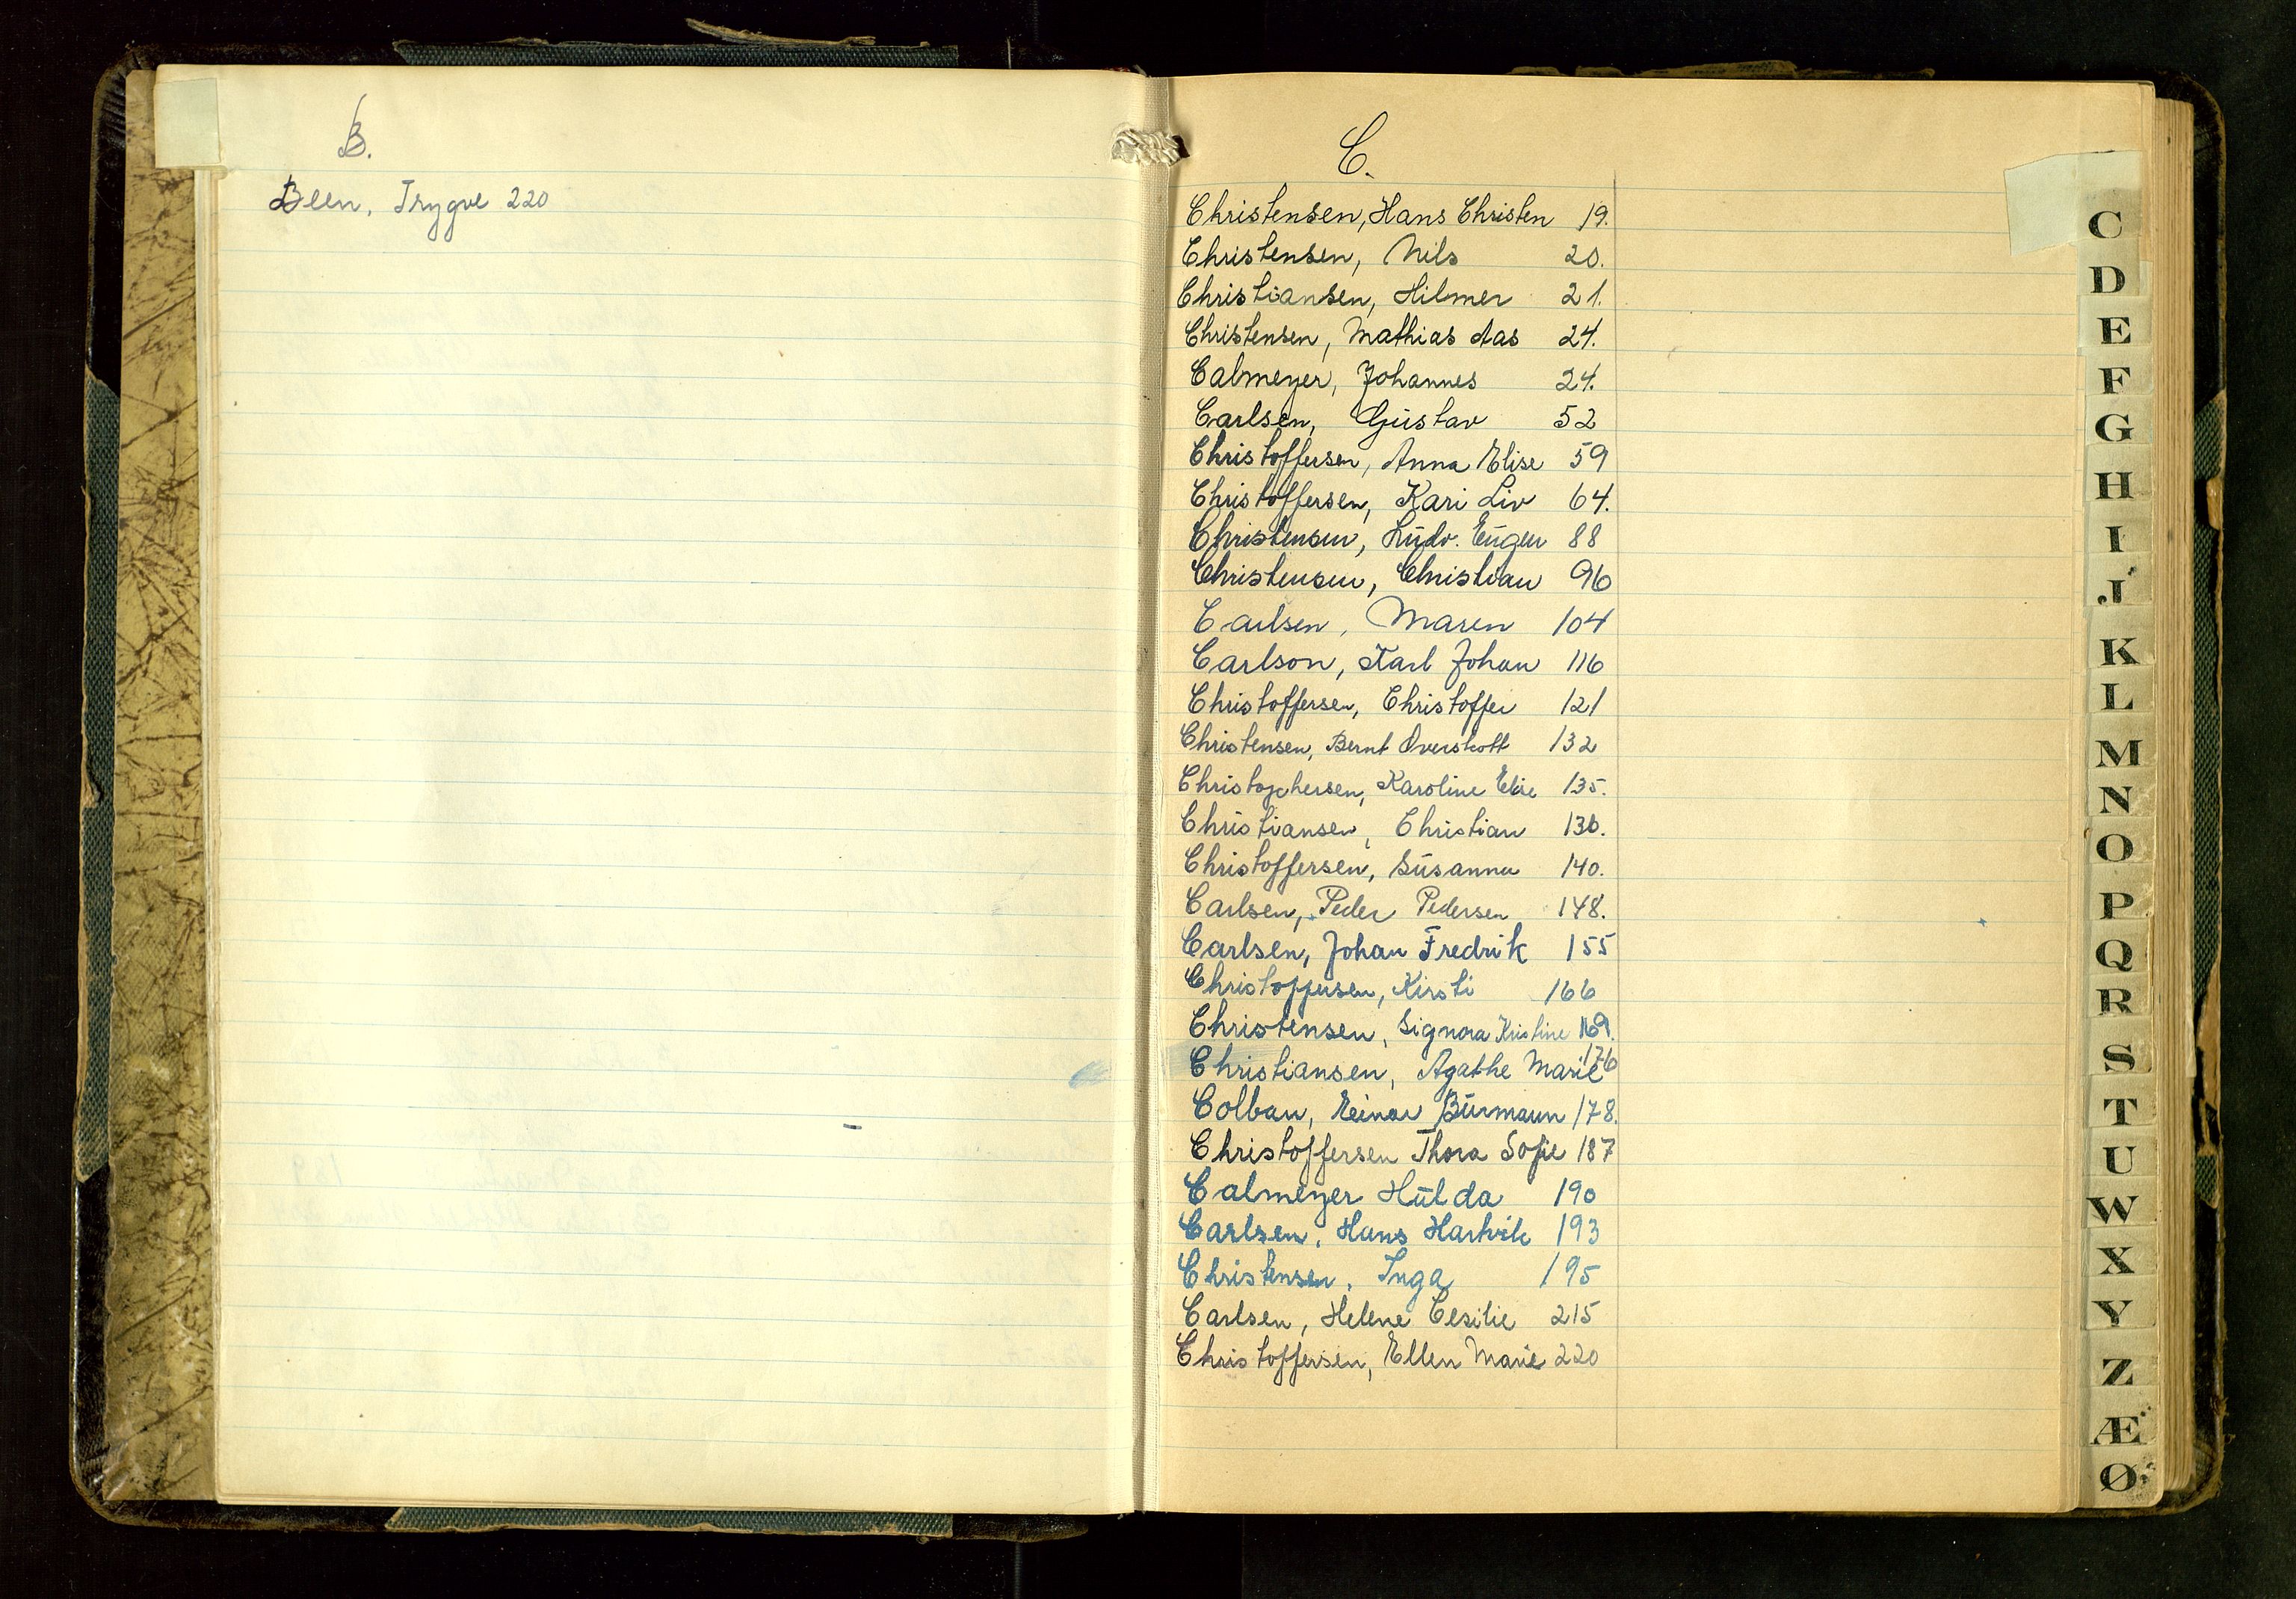 B.
Been, Trygve 220
C.
Christensen, Hans Christen 19.
Christensen, Nils 20.
Christiansen, Hilmer 21.
Christensen, Mathias Aas 24.
Calmeyer, Johannes 24.
Carlsen, Gustav 52
Christoffersen, Anna Elise 59
Christoffersen, Kari Liv 64.
Christensen, Ludv. Eugen 88
Christensen, Christian 96
Carlsen, Maren 104
Carlson, Karl Johan 116
Christoffersen, Christoffer 121
Christensen, Bernt Overskott 132
Christophersen, Karoline Elise 135.
Christiansen, Christian 136.
Christoffersen, Susanna 140.
Carlsen, Peder Pedersen 148.
Carlsen, Johan Fredrik 155
Christoffersen, Kirsti 166
Christensen, Signora Kristine 169.
Christiansen, Agathe Marie 176
Colban, Einar Burmann 178.
Christoffersen Thora Sofie 187
Calmeyer Hulda 190
Carlsen, Hans Hartvik 193
Christensen, Inga 195
Carlsen, Helene Cesilie 215
Christoffersen, Ellen Marie 220
C
D
E
F
G
H
I
J
K
L
M
N
O
P
Q
R
S
T
U
W
X
Y
Z
Æ
Ø